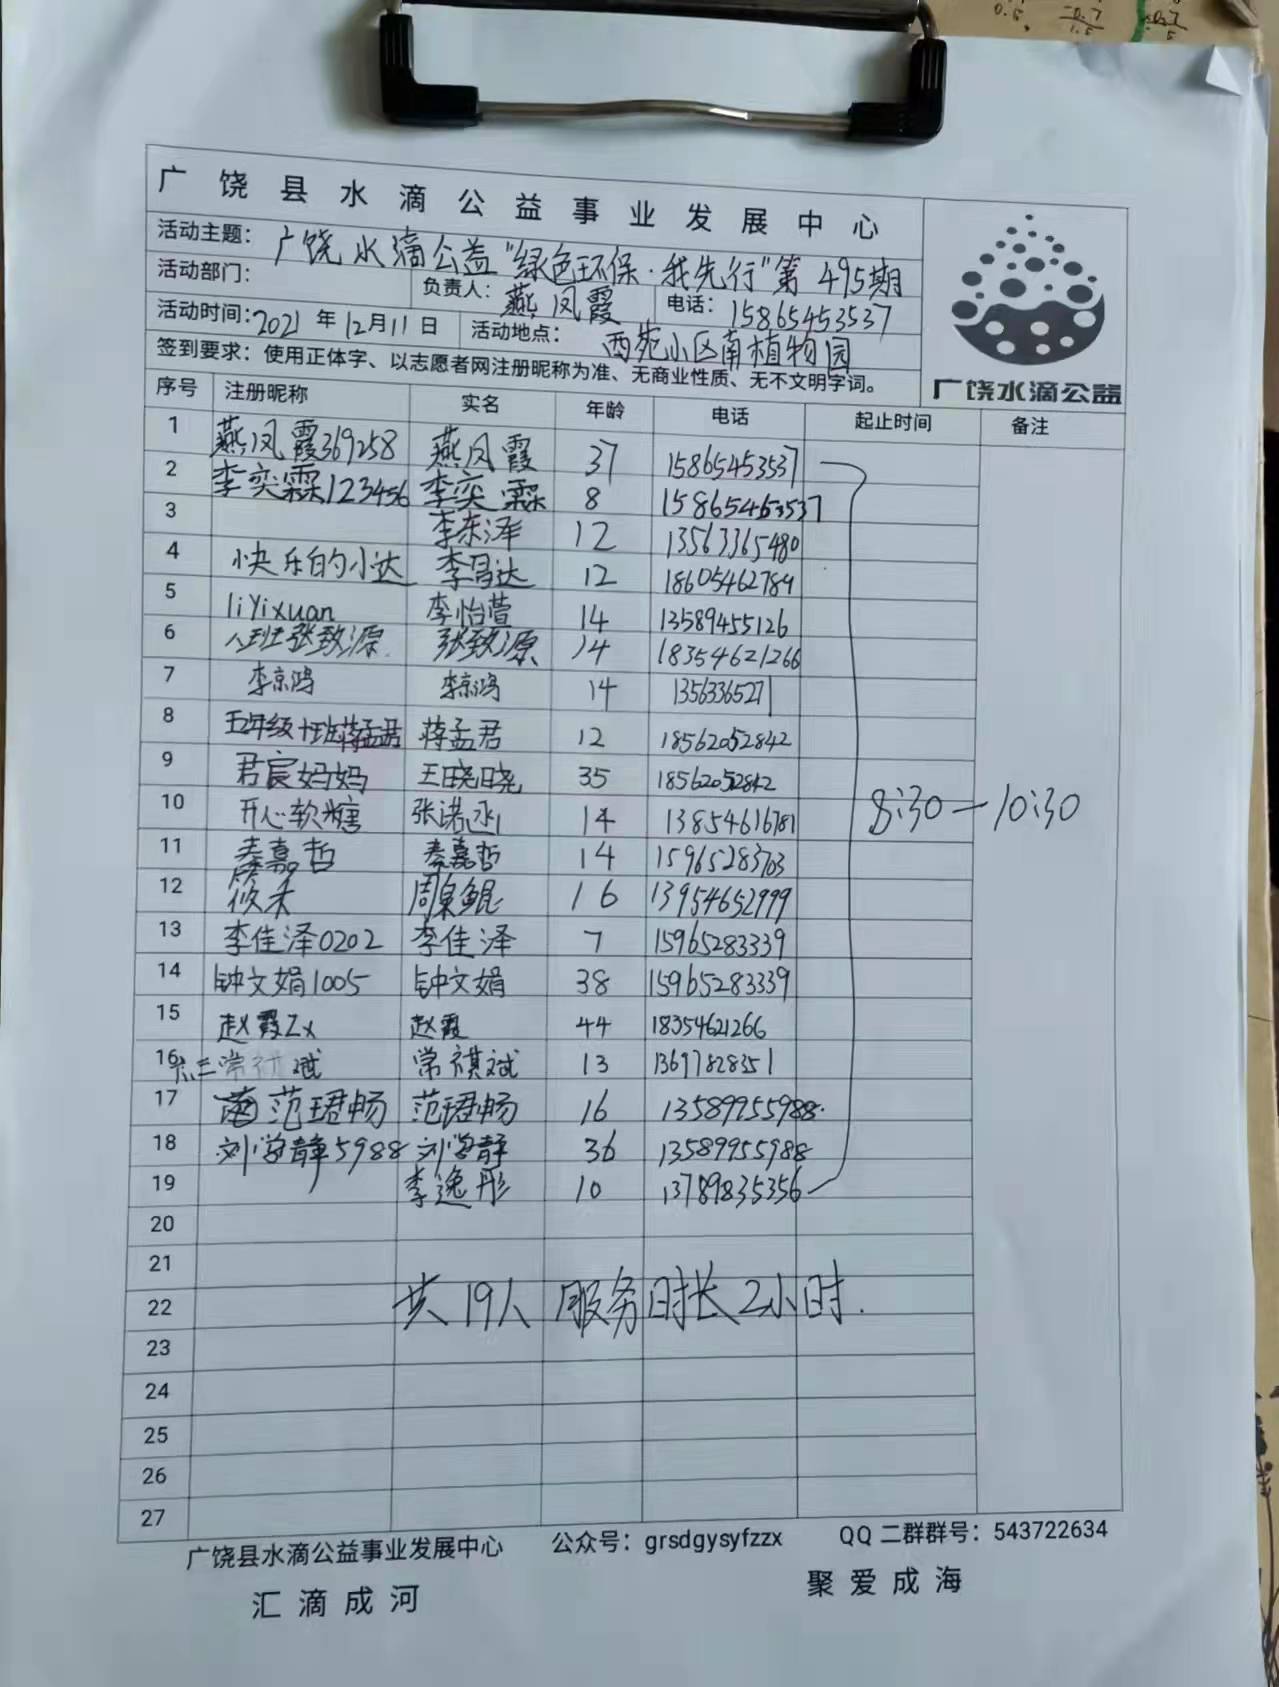 广饶县水滴公益事业发展中心
活动主题：广饶水滴公益“绿色环保·我先行”第495期
活动部门： 负责人：燕凤霞 电话：15865453537
活动时间：2021年12月11日 活动地点：西苑小区南植物园
签到要求：使用正体字、以志愿者网注册昵称为准、无商业性质、无不文明字词。
广饶水滴公益
序号 注册昵称 实名 年龄 电话 起止时间 备注
1 燕凤霞369258 燕凤霞 37 15865453537
2 李奕霖123456 李奕霖 8 15865453537
3 李东泽 12 13563365480
4 快乐的小达 李昌达 12 18605462789
5 liYixuan 李怡萱 14 13589455126
6 八班张致源 张致源 14 18354621266
7 李京鸿 李京鸿 14 13563365271
8 五年级十班蒋孟君 蒋孟君 12 18562052842
9 君宸妈妈 王晓晓 35 18562052842
10 开心软糖 张诺 14 13854616781
8:30—10:30
11 秦嘉哲 秦嘉哲 14 15965283703
12 筱禾 周 鲲 16 13954652999
13 李佳泽0202 李佳泽 7 15965283339
14 钟文娟1005 钟文娟 38 15965283339
15 赵霞Zx 赵霞 44 18354621266
16 六三常祺斌 常祺斌 13 13697828351
17 范珺畅 范珺畅 16 13589955988
18 刘学静5988 刘学静 36 13589955988
19 李逸彤 10 13789835356
20
21
22 共19人 服务时长2小时.
23
24
25
26
27
广饶县水滴公益事业发展中心 公众号：grsdgysyfzzx QQ二群群号：543722634
汇滴成河 聚爱成海